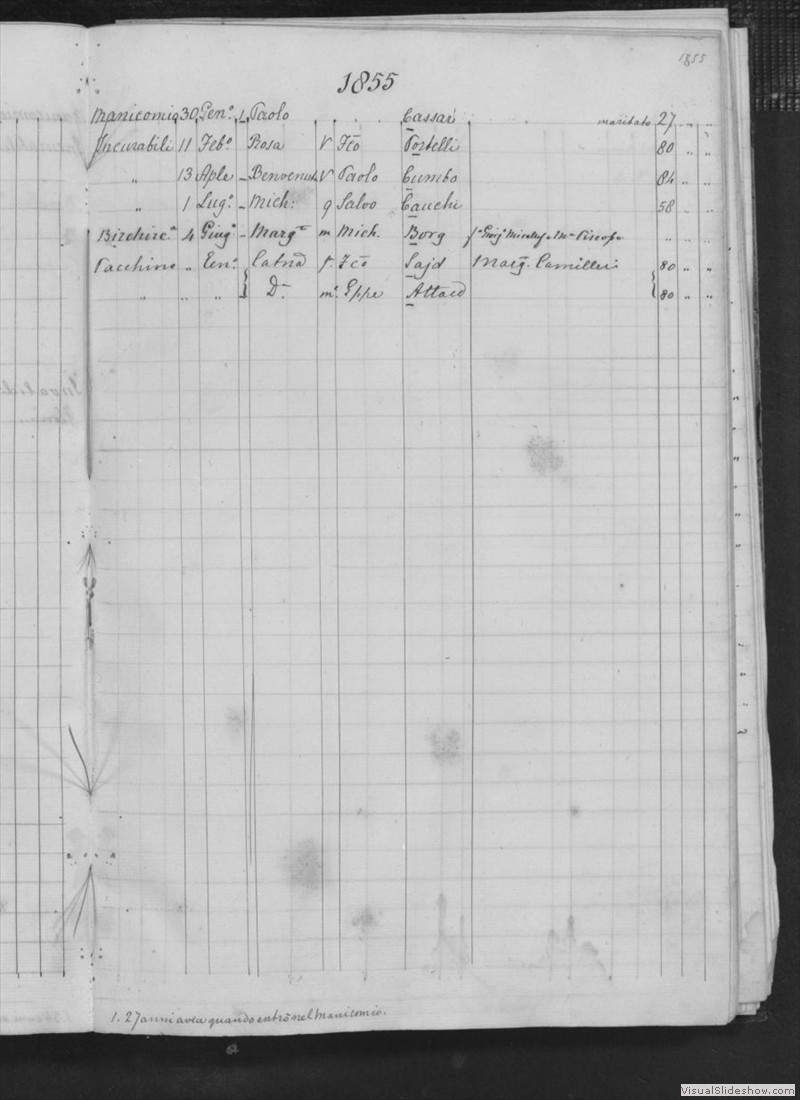 1855
1855
Manicomio 30 Gen.º 1. Paolo . . . . Cassar . . maritato 27 " "
Incurabili 11 Febº Rosa V Fcō Portelli 80 " "
" 13 Aple - Benvenuta V Paolo Cumbo 84 " "
" 1 Lugº - Mich: q Salvo Cauchi 58 " "
Birchirc.ª 4 Giugº - Margta m Mich. Borg " " "
Pacchino " Gen.º Catna f. Fcō Sajd Marg. Camilleri 80 " "
" " " Da m. Gppe Attard 80 " "
1. 27 anni avea quando entrò nel Manicomio.
VisualSlideshow.com